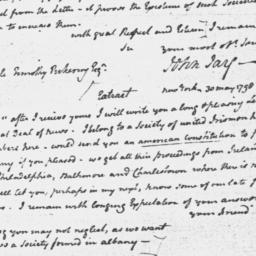 from the Letter - it proves the Existence of such Societies
to increase them.
with great Respect and Esteem, I remain
Sir
your most ob. Ser
John Jay
Timothy Pickering Esq.
Extract
New York, 30 may 1798
"after I receive yours I will write you a long Epistle
deal of news. I belong to a Society of united Irishmen
here - would send you an american constitution to
any if you pleased - we get all their proceedings from Irela
Philadelphia, Baltimore and Charlestown where there is
will let you, perhaps in my next, know some of our late
I remain with longing Expectation of your answer
your friend
you may not neglect, as we want
a Society formed in albany -